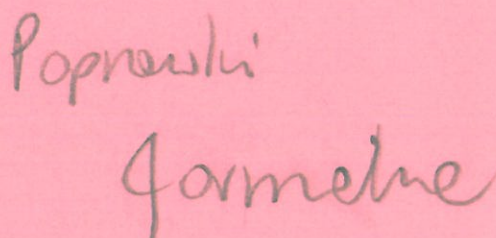 Poprawki
formalne